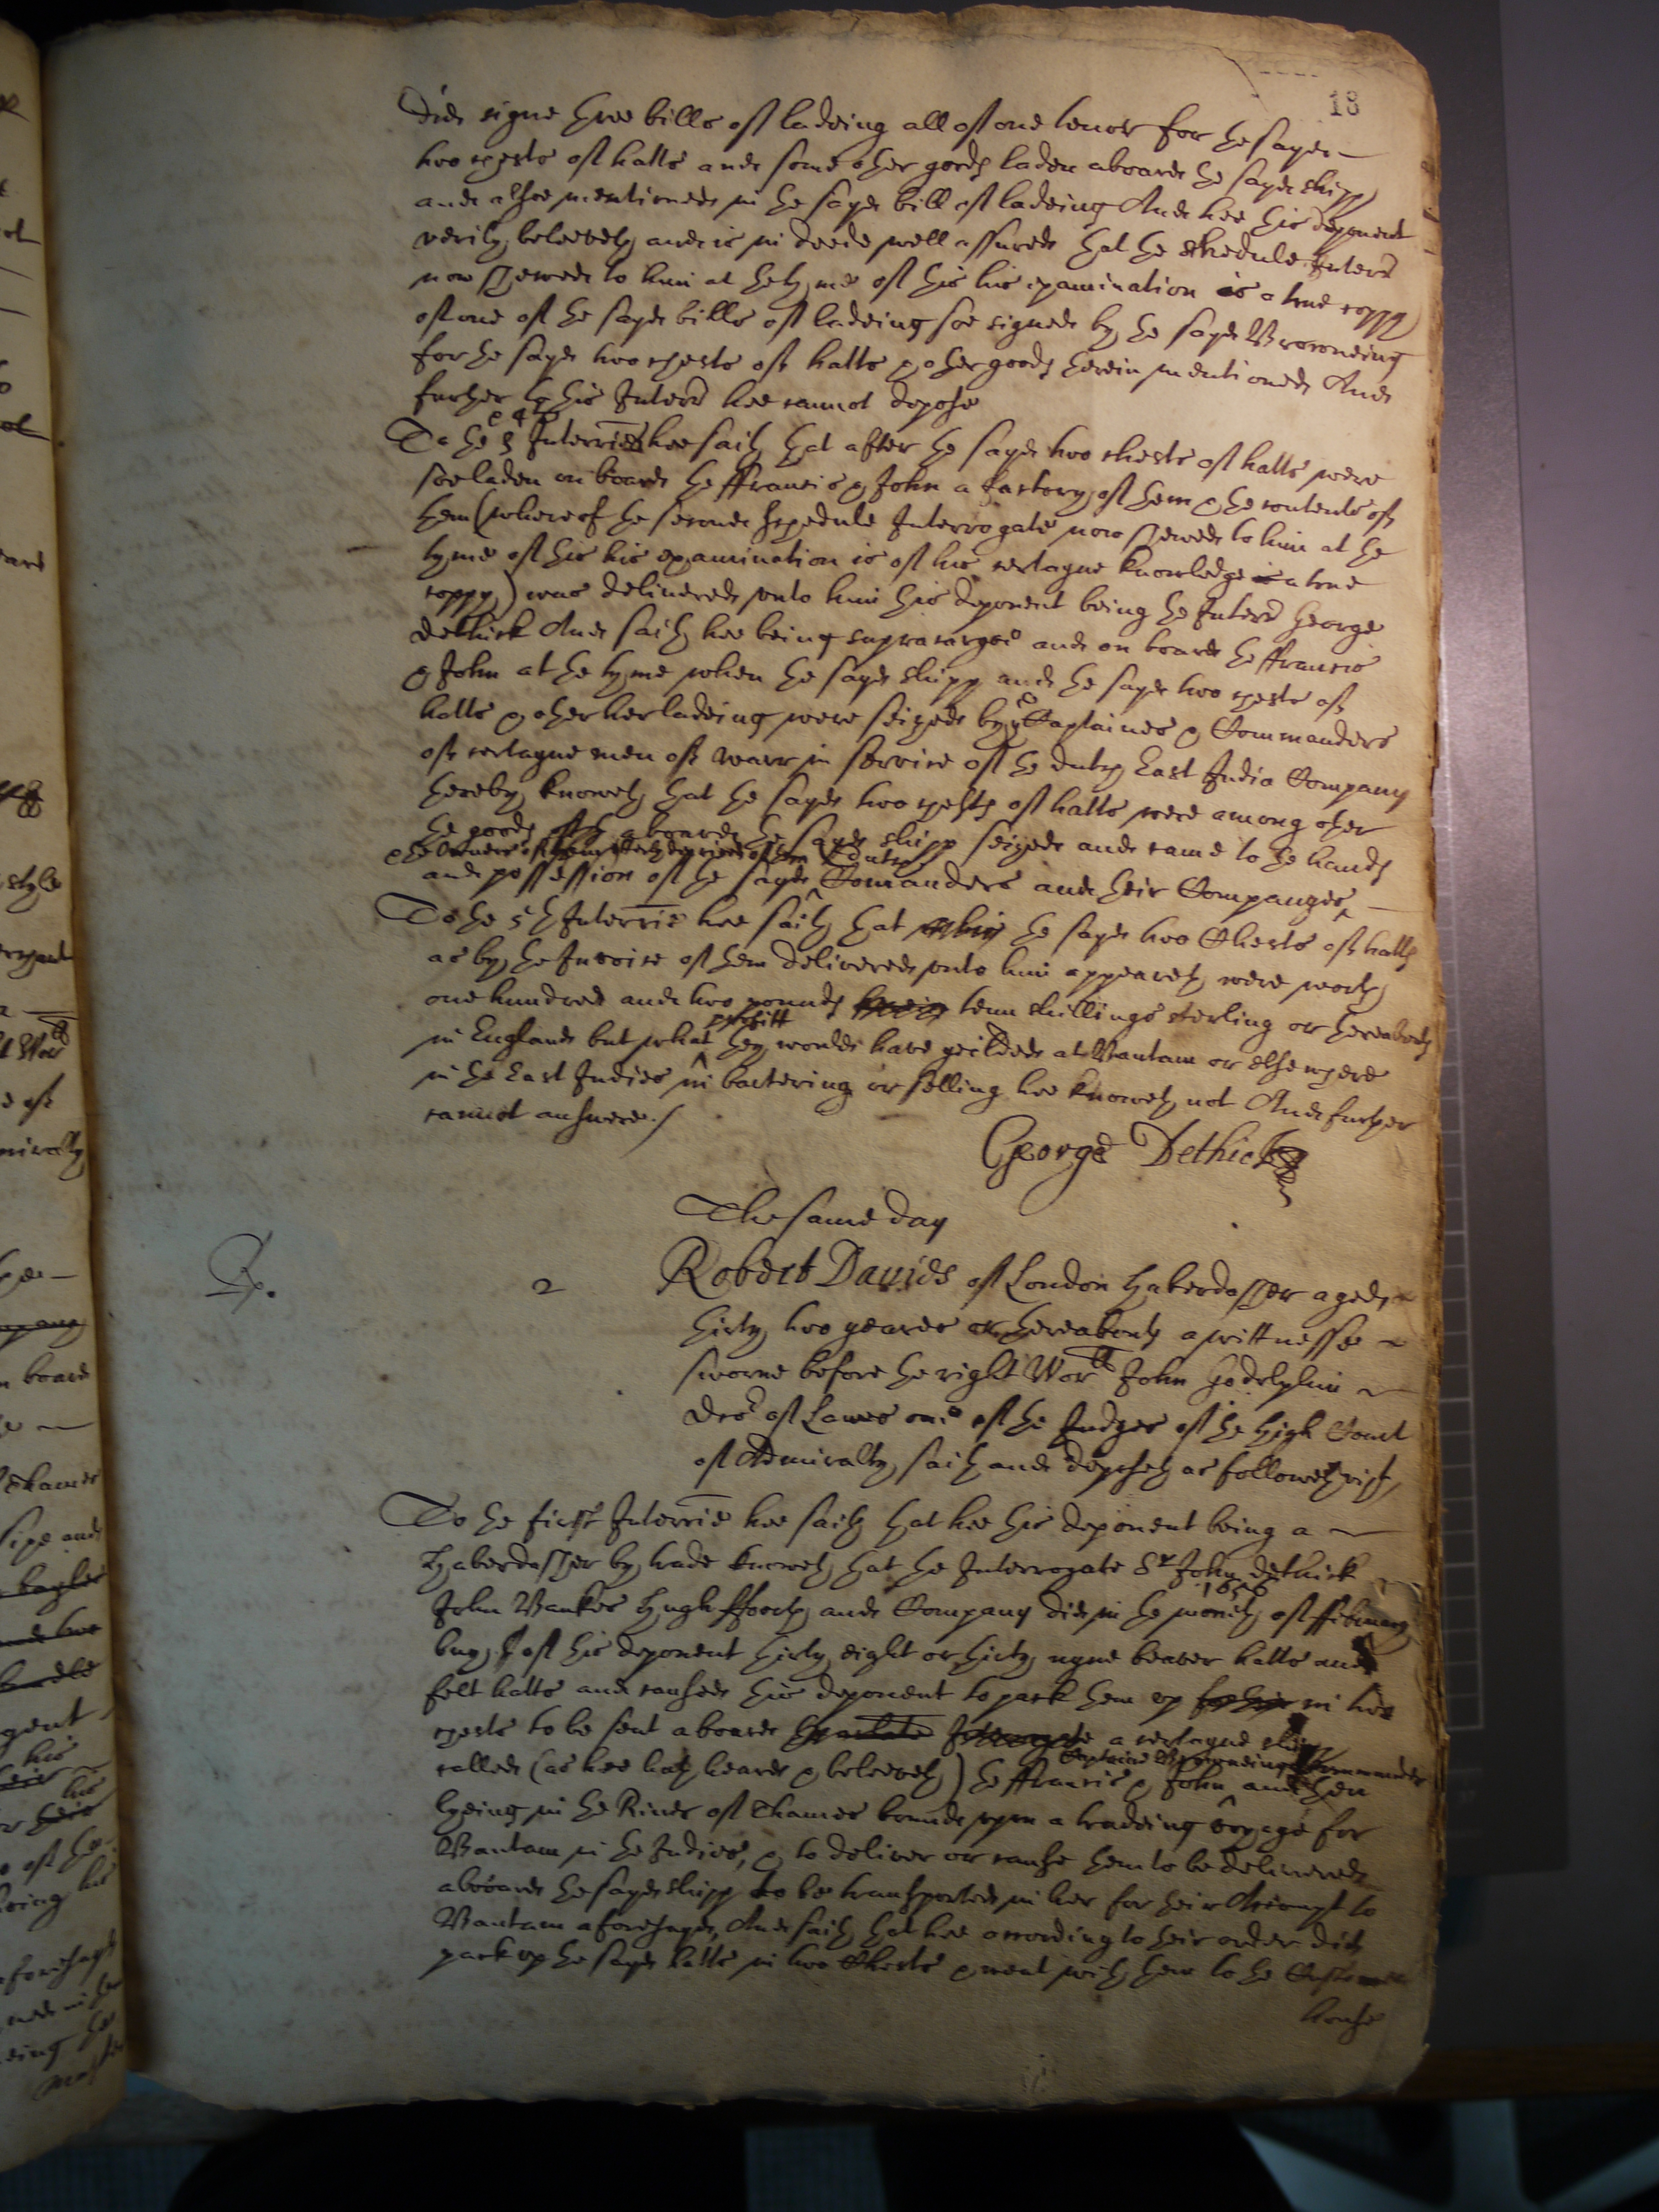 18
did signe three bills of ladeing all of one tenor for the sayd
two chests of hatts and some other goods laden aboard the sayd shipp
and alsoe mentioned in the sayd bill of ladeing And hee this deponent
verily beleeveth and is in deede well assured that the schedule Interr
now shewed to him at the tyme of this his examination is a true coppy
of one of the sayd bills of ladeing soe signed by the sayd Browneing
for the sayd two chests of hatts & other goods therein mentioned And
further to this Interr hee cannot depose
To the 3 & 4th Interrie hee saith that after the sayd two chests of hatts were
soe laden on board the ffrancis & John a factory of them & the contents of
them (whereof the second schedule Interrogate now shewed to him at the
tyme of this his examination is of his certayne knowledge a true
coppy) was delivered unto him this deponent being the Interr George
Dethick And saith hee being supracargoe and on board the ffrancis
& John at the tyme when the sayd shipp and the sayd two chests of
hatts & other her ladeing were seized by the Captaines & Commanders
of certayne men of warr in service of the dutch East India Company
thereby knoweth that the sayd two chests of hatts were among other
the goods aboard the sayd shipp seized and came to the hands
& the owners of them utterly deprived of them dutch
and possession of the sayd Comanders and their Companyes
To the 5th Interrie hee saith that the sayd two Chests of hatts
as by the Invoice of them delivered unto him appeareth were worth
one hundred and two pounds tenn shillings sterling or thereabouts
proffitt
in England but what they would have yeilded at Bantam or elsewhere
in the East Indies in bartering or selling hee knoweth not And further
cannot answere./
George Dethick
The same day
Rp. 2 Robert Davies of London Haberdasher aged
thirty two yeares or thereabouts a wittnesse
sworne before the right Worll John Godolphin
Dcor of Lawes one of the Judges of the high Court
of Admiralty, saith and deposeth as followeth vizt,
To the first Interrie hee saith that hee this deponent being a
Haberdasher by trade knoweth that the Interrogate Sr John Dethick
1656
John Bankes Hugh fforth and Company did in the moneth of ffebruary
buy of this deponent thirty eight or thirty nyne beaver hatts and
felt hatts and caused this deponent to pack them up in two
chests to be sent aboard a certayne shipp
Captaine Browneing Commander
called (as hee hath heard & beleeveth) the ffrancis & John and then
lyeing in the River of Thames bound upon a tradeing voyage for
Bantam in the Indies, & to deliver or cause them to be delivered
aboard the sayd shipp to be transported in her for their Accompt to
Bantam aforesayd, And saith that hee according to their order did
pack up the sayd hatts in two Chests & went with them to the Custome
house